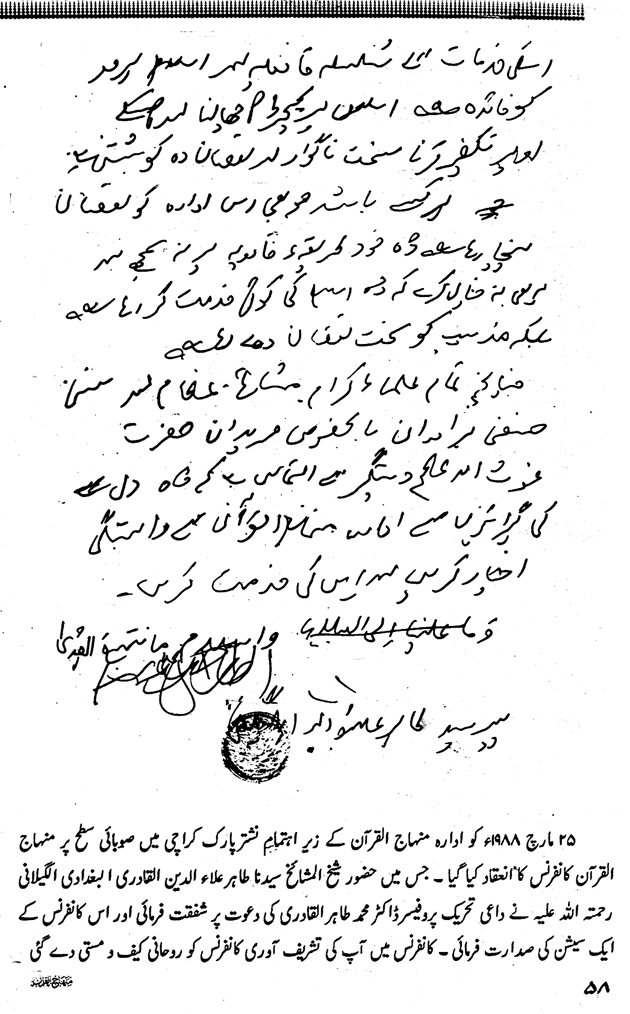 اسکی خدمات کے سلسلہ قائم ہیں اور اسلام
کو فائدہ ہے اسلام پر کیچڑ اچھالنا اور
تکفیر کرنا سخت ناگوار اور نقصان دہ کوشش ہے
اور کسے باشد جو بھی اس ادارہ کو نقصان
پہنچا رہا ہے وہ خود طریقہء قادریہ پر نہ سمجھے
یہ خیال کرے کہ وہ اسلام کی کوئی خدمت کر رہا ہے
بلکہ مذہب کو سخت نقصان دے رہا ہے
چنانچہ تمام علماء کرام مشائخ عظام اور سنی
حنفی برادران بالخصوص مریدان حضرت
غوث اعظم دستگیر سے التماس ہے کہ وہ دل
کی گہرائیوں سے ادارہ منہاج القرآن سے وابستگی
اختیار کریں اور اس کی خدمت کریں۔
وما علینا الی البلاغ
پیر سید طاہر علاؤالدین
۲۵ مارچ ۱۹۸۸ء کو ادارہ منہاج القرآن کے زیر اہتمام نشتر پارک کراچی میں صوبائی سطح پر منہاج
القرآن کانفرنس کا انعقاد کیا گیا ۔ جس میں حضور شیخ المشائخ سیدنا طاہر علاء الدین القادری البغدادی الگیلانی
رحمتہ اللہ علیہ نے داعی تحریک پروفیسر ڈاکٹر محمد طاہر القادری کی دعوت پر شفقت فرمائی اور اس کانفرنس کے
ایک سیشن کی صدارت فرمائی ۔ کانفرنس میں آپ کی تشریف آوری کانفرنس کو روحانی کیف و مستی دے گئی
منہاج القرآن
۵۸